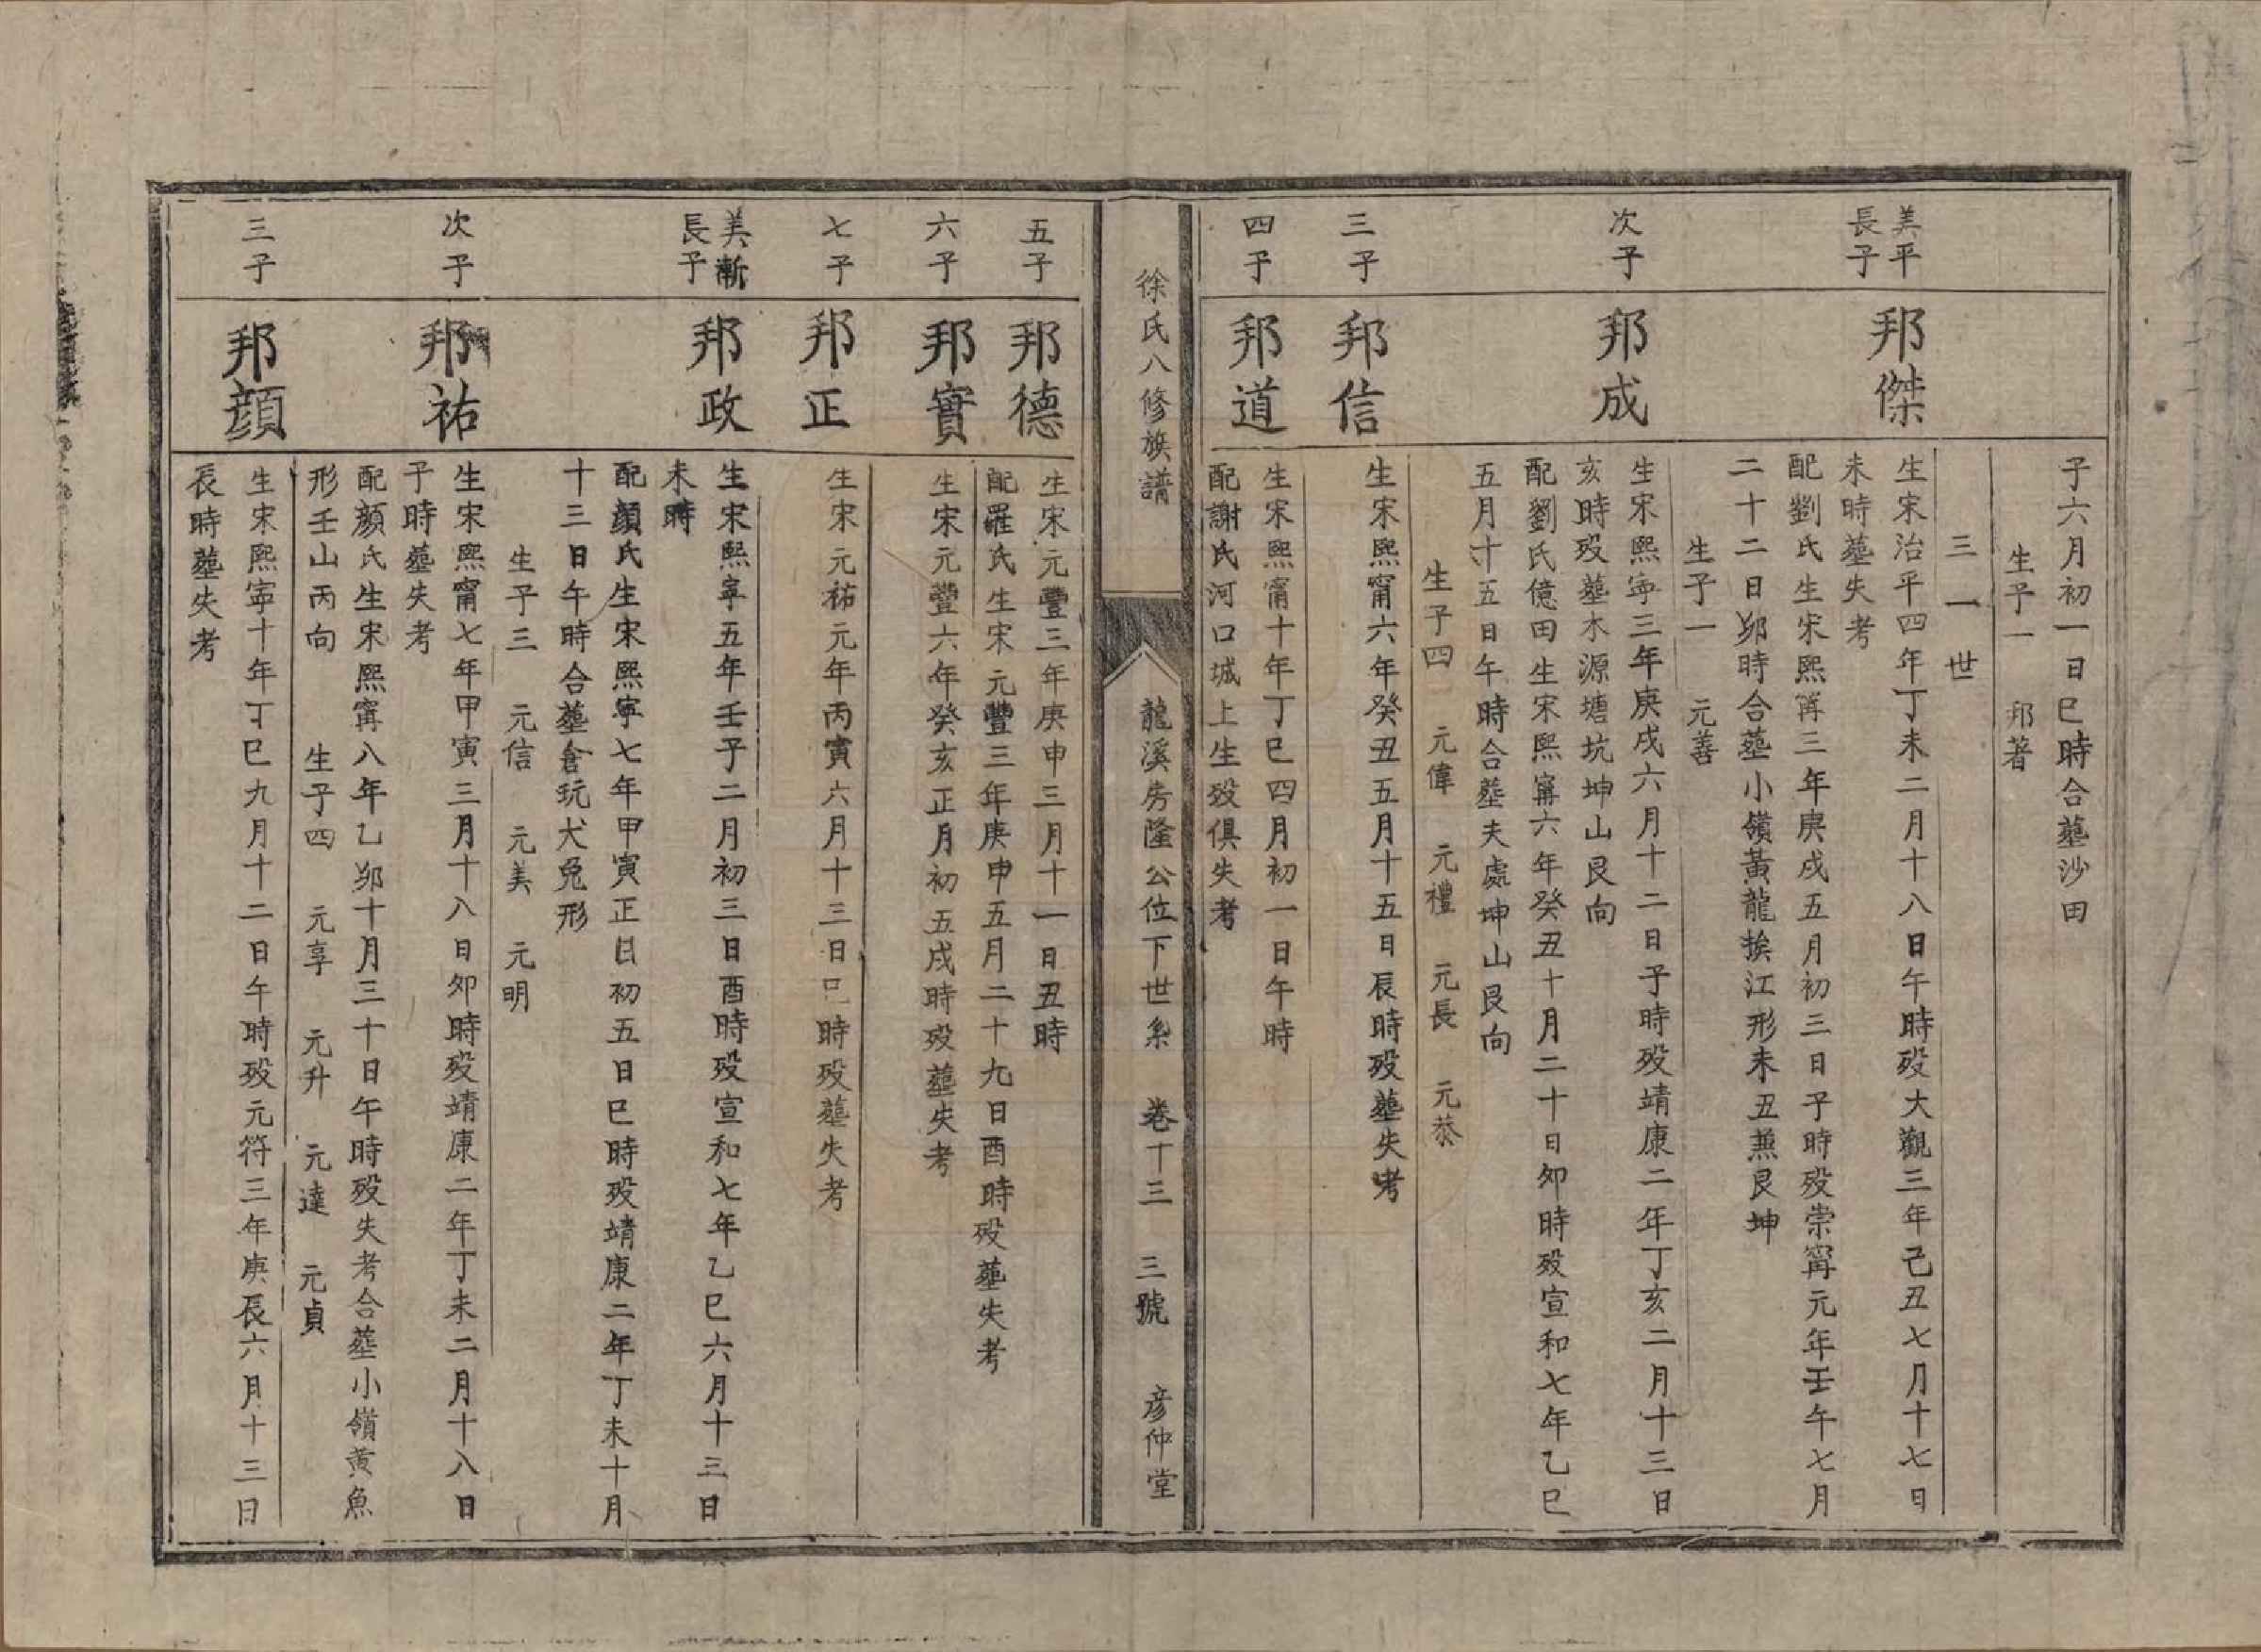 子六月初一日巳時合墓沙田
生子一 邦著
三一世
美平
長子
邦傑
生宋治平四年丁未二月十八日午時殁大觀三年己丑七月十七日
未時墓失考
配劉氏生宋熙甯三年庚戌五月初三日子時殁崇甯元年壬午七月
二十二日夘時合墓小嶺黃龍挨江形未丑兼艮坤
生子一 元善
次子
邦成
生宋熙寧三年庚戌六月十二日子時殁靖康二年丁亥二月十三日
亥時殁墓木源塘坑坤山艮向
配劉氏億田生宋熙甯六年癸丑十月二十日夘時殁宣和七年乙巳
五月十五日午時合墓夫處坤山艮向
生子四 元偉 元禮 元長 元恭
三子
邦信
生宋熙甯六年癸丑五月十五日辰時殁墓失考
四子
邦道
生宋熙甯十年丁巳四月初一日午時
配謝氏河口城上生殁俱失考
徐氏八修族譜
龍溪房隆公位下世系 卷十三 三號 彦仲堂
五子
邦德
生宋元豐三年庚申三月十一日丑時
配羅氏生宋元豐三年庚申五月二十九日酉時殁墓失考
六子
邦實
生宋元豐六年癸亥正月初五戌時殁墓失考
七子
邦正
生宋元祐元年丙寅六月十三日巳時殁墓失考
美漸
長子
邦政
生宋熙寧五年壬子二月初三日酉時殁宣和七年乙巳六月十三日
未時
配顏氏生宋熙寧七年甲寅正日初五日巳時殁靖康二年丁未十月
十三日午時合墓倉玩犬兔形
生子三 元信 元美 元明
次子
邦祐
生宋熙甯七年甲寅三月十八日夘時殁靖康二年丁未二月十八日
子時墓失考
配顏氏生宋熙甯八年乙夘十月三十日午時殁失考合墓小嶺黃魚
形壬山丙向 生子四 元享 元升 元達 元貞
三子
邦顔
生宋熙寧十年丁巳九月十二日午時殁元符三年庚辰六月十三日
辰時墓失考